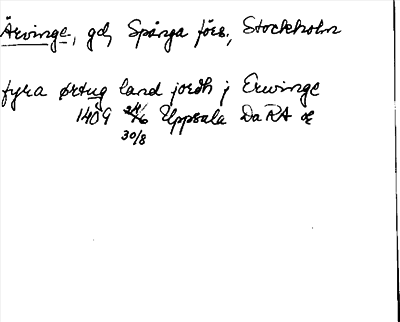 Ärvinge, gd, Spånga förs., Stockholm
fyra ørtug land jordh j Erwinge
1409 24/6 Uppsala DaRA or
30/8